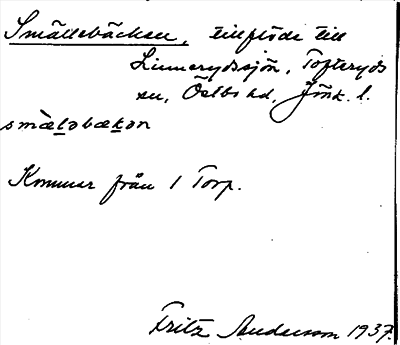 Smällebäcken, tillflöde till
Linnerydssjön, Tofteryds
sn, Östbo hd, Jönk. l.
smàləbækən
Kommer från 1 Torp.
Fritz Andersson 1937.